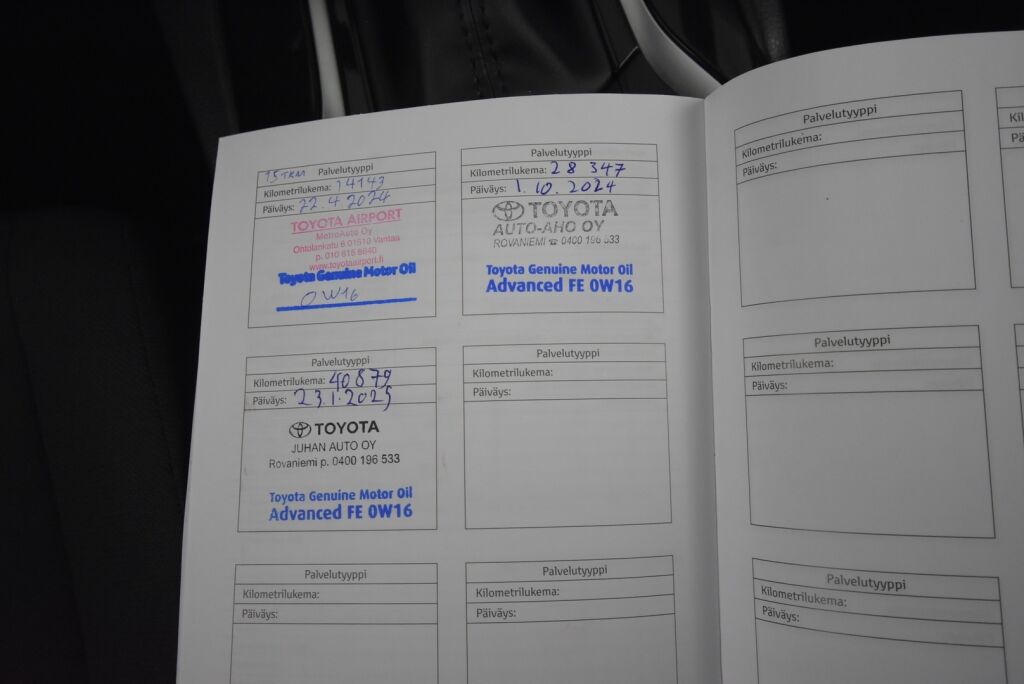 15 TKM Palvelutyyppi
Kilometrilukema: 14143
Päiväys: 22.4 2024
TOYOTA AIRPORT
MetroAuto Oy
Ohtolankatu 6 01510 Vantaa
p. 010 615 8640
www.toyotaairport.fi
Toyota Genuine Motor Oil
0W16
Palvelutyyppi
Kilometrilukema: 28 347
Päiväys: 1. 10. 2024
TOYOTA
AUTO-AHO OY
ROVANIEMI ☎ 0400 196 533
Toyota Genuine Motor Oil
Advanced FE 0W16
Palvelutyyppi
Kilometrilukema: 40879
Päiväys: 23.1.2025
TOYOTA
JUHAN AUTO OY
Rovaniemi p. 0400 196 533
Toyota Genuine Motor Oil
Advanced FE 0W16
Palvelutyyppi
Kilometrilukema:
Päiväys:
Palvelutyyppi
Kilometrilukema:
Päiväys:
Palvelutyyppi
Kilometrilukema:
Päiväys:
Palvelutyyppi
Kilometrilukema:
Päiväys:
Palvelutyyppi
Kilometrilukema:
Päiväys:
Palvelutyyppi
Kilometrilukema:
Päiväys: